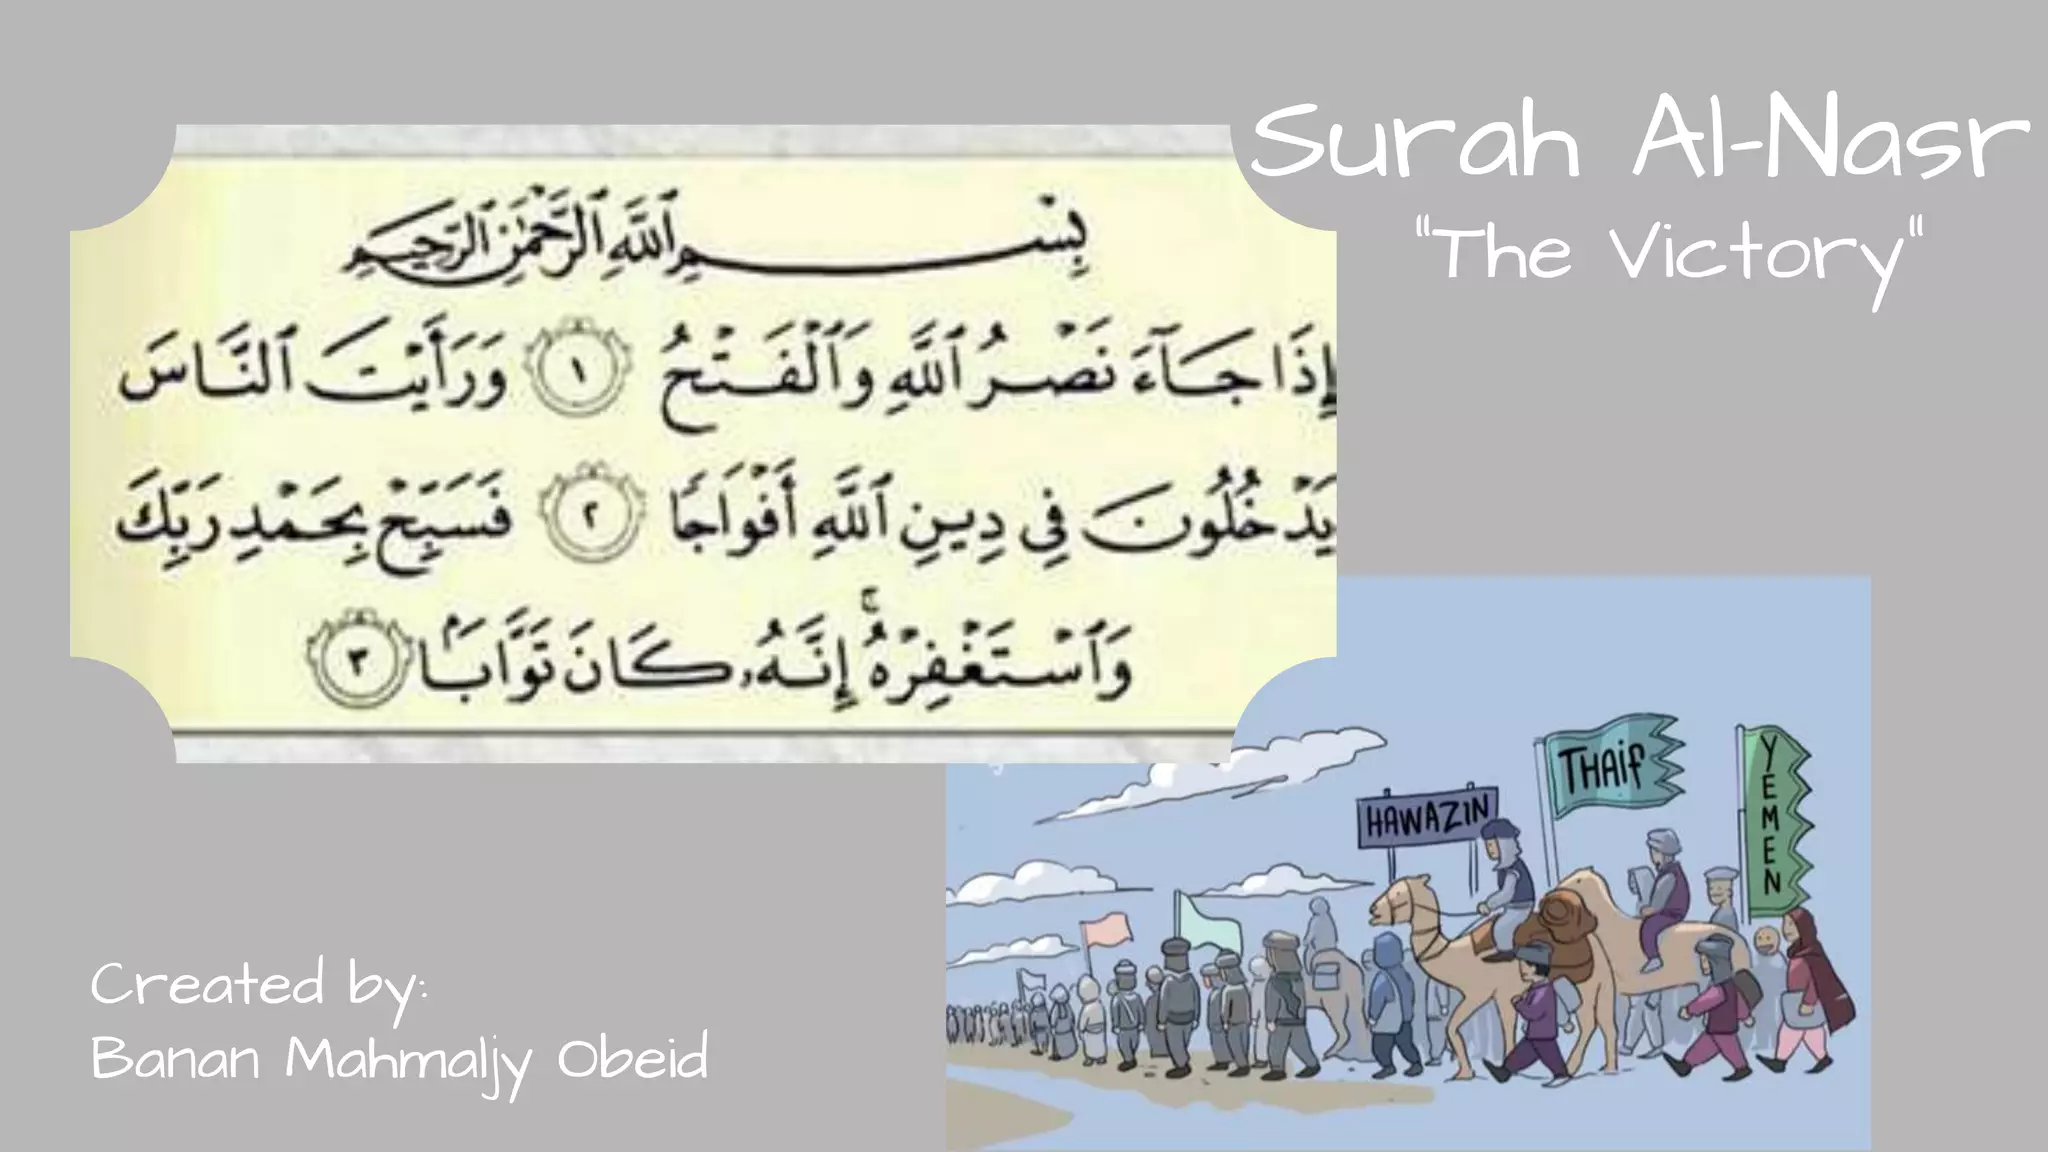 Surah Al-Nasr
"The Victory"
بِسْمِ ٱللَّهِ ٱلرَّحْمَٰنِ ٱلرَّحِيمِ
إِذَا جَآءَ نَصْرُ ٱللَّهِ وَٱلْفَتْحُ ١ وَرَأَيْتَ ٱلنَّاسَ
يَدْخُلُونَ فِى دِينِ ٱللَّهِ أَفْوَاجًا ٢ فَسَبِّحْ بِحَمْدِ رَبِّكَ
وَٱسْتَغْفِرْهُ ۚ إِنَّهُۥ كَانَ تَوَّابًۢا ٣
HAWAZIN
THAif
YEMEN
Created by:
Banan Mahmaljy Obeid